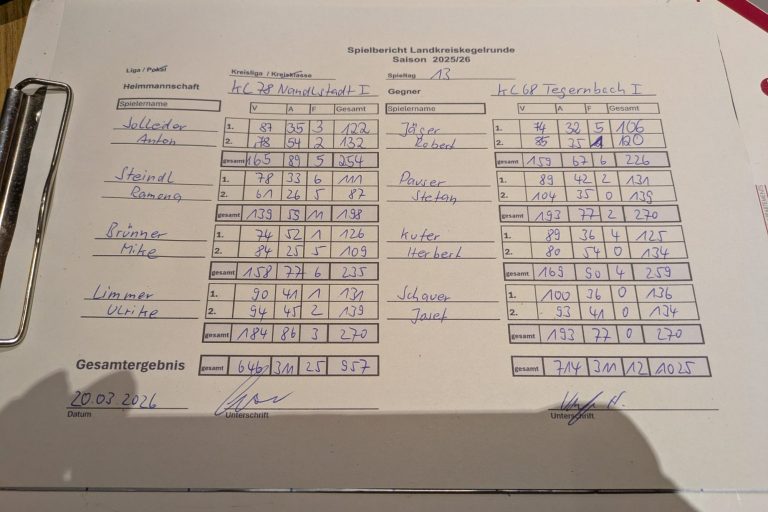 Spielbericht Landkreiskegelrunde
Saison 2025/26
Liga / Pokal Kreisliga / Kreisklasse Spieltag 13
Heimmannschaft KC 78 Nandlstadt I Gegner KC 68 Tegernbach I
Spielername V A F Gesamt Spielername V A F Gesamt
Solleder 1. 87 35 3 122 Jäger 1. 74 32 5 106
Anton 2. 78 54 2 132 Robert 2. 85 35 1 120
gesamt 165 89 5 254 gesamt 159 67 6 226
Steindl 1. 78 33 6 111 Pauser 1. 89 42 2 131
Ramona 2. 61 26 5 87 Stefan 2. 104 35 0 139
gesamt 139 59 11 198 gesamt 193 77 2 270
Brünner 1. 74 52 1 126 Kufer 1. 89 36 4 125
Mike 2. 84 25 5 109 Herbert 2. 80 54 0 134
gesamt 158 77 6 235 gesamt 169 90 4 259
Limmer 1. 90 41 1 131 Schauer 1. 100 36 0 136
Ulrike 2. 94 45 2 139 Josef 2. 93 41 0 134
gesamt 184 86 3 270 gesamt 193 77 0 270
Gesamtergebnis gesamt 646 311 25 957 gesamt 714 311 12 1025
20.03.2026
Datum Unterschrift Unterschrift